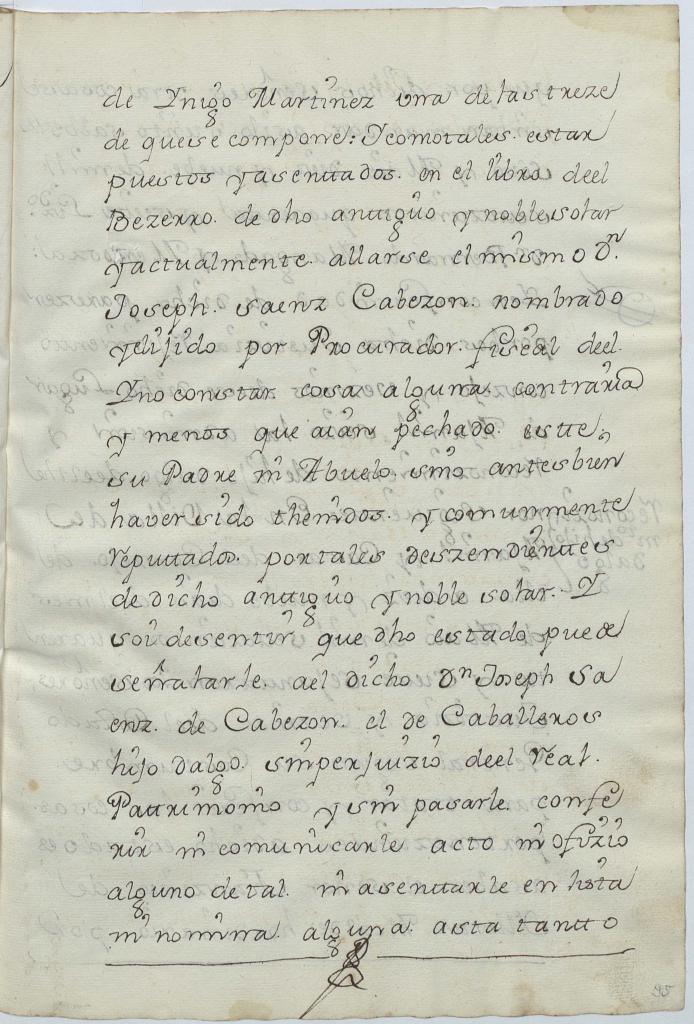 de Ynigo Martinez una de las treze
de que se compone: Y como tales. estar
puestos y asenttados. en el libro deel
Bezerro. de dho anttiguo y noble solar
y actualmente. allarse el mismo Dn.
Joseph. saenz Cabezon. nombrado
y elijido por Procurador. fiscal deel.
Y no constar. cosa alguna. contraria
y menos que aian pechado. estte,
su Padre ni Abuelo. sino antes bien
haver sido thenidos. y comunmente
reputtados. por tales deszendienttes
de dicho anttiguo y noble solar. Y
soi de sentir que dho estado puede
señalarle. a el dicho Dn Joseph Sa
enz. de Cabezon. el de Caballeros
hijo dalgo. sin perjuizio deel real.
Pattrimonio y sin pasarle. confe
rir ni comunicarle acto ni ofizio
alguno de tal. ni asenttarle en lista
ni nomina. alguna. asta tantto
95